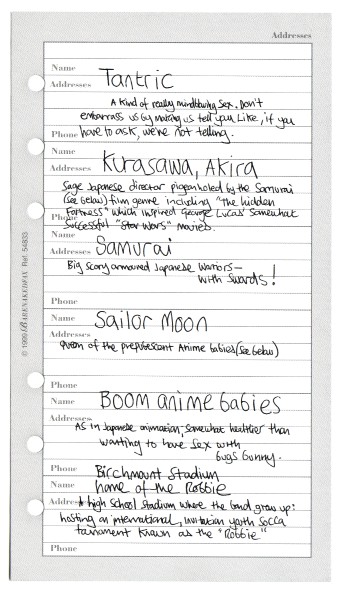 Addresses
Name
Tantric
Addresses
A kind of really mindblowing sex. Don't
embarrass us by making us tell you. Like, if you
Phone have to ask, we're not telling.
Name
Kurasawa, Akira
Addresses
Sage Japanese director pigeonholed by the Samurai
(see below) film genre including "the hidden
Phone
Fortress" which inspired George Lucas' somewhat
successful "Star Wars" movies.
Name
Samurai
Addresses
Big scary armoured Japanese warriors—
with swords!
Phone
Name
Sailor Moon
Addresses
Queen of the prepubescent Anime babies (see below)
Phone
Name
Boom anime babies
Addresses
As in Japanese animation; somewhat healthier than
wanting to have sex with
bugs bunny.
Phone
Birchmount Stadium
Name
home of the Robbie
Addresses
A high school stadium where the band grew up:
hosting an international, invitation youth socca
tournament known as the "Robbie"
Phone
© 1999 BARENAKEDFAX Ref. 54833